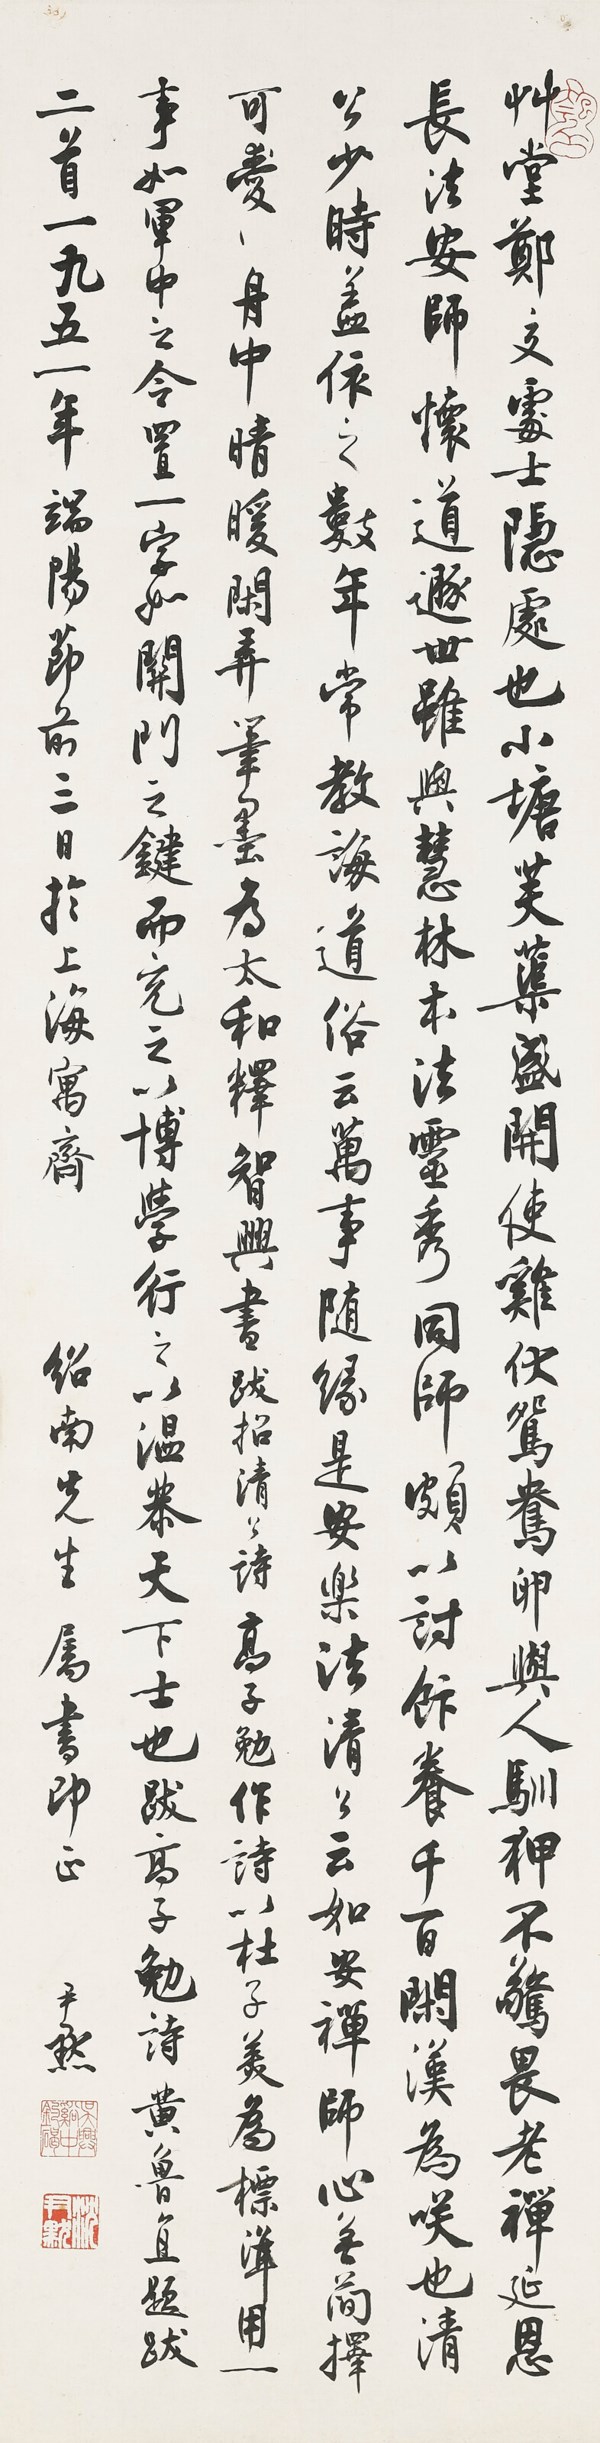 艸堂鄭交處士隱處也小塘芙蕖盛開使雞伏鴛鴦卵與人馴狎不驚畏老禪延恩
長法安師懷道遯世雖與慧林本法靈秀同師頗以討飯養千百閑漢為笑也清
公少時盖依之數年常教誨道俗云萬事隨緣是安樂法清公云如安禪師心無簡擇
可愛〻舟中晴暖閑弄筆墨為太和釋智興書跋招清公詩高子勉作詩以杜子美為標準用一
事如軍中之令置一字如關門之鍵而充之以博學行之以溫恭天下士也跋高子勉詩黃魯直題跋
二首一九五一年端陽節前三日於上海寓齋
紹南先生屬書即正
尹默
沈尹默